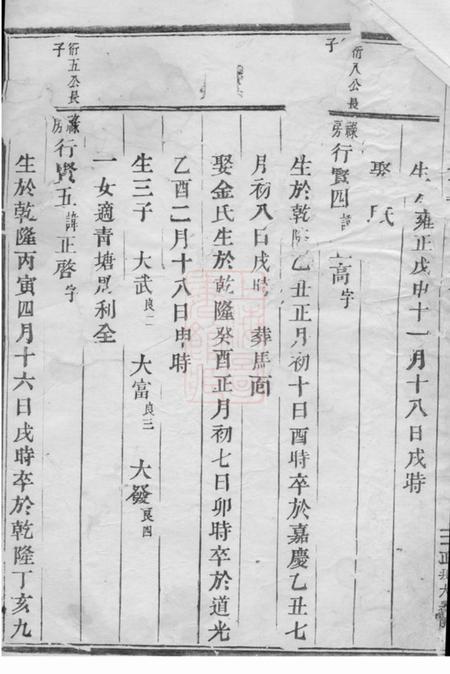 生 雍正戊申十一月十八日戌時
娶 氏
衍八公長
子
祿房行賢四諱 高字
生於乾隆乙丑正月初十日酉時卒於嘉慶乙丑七
月初八日戌時 葬馬面
娶金氏生於乾隆癸酉正月初七日卯時卒於道光
乙酉二月十八日申時
生三子 大武良二 大富良三 大發良四
一女適青塘周利全
衍五公長
子
祿房行賢五諱正啓字
生於乾隆丙寅四月十六日戌時卒於乾隆丁亥九